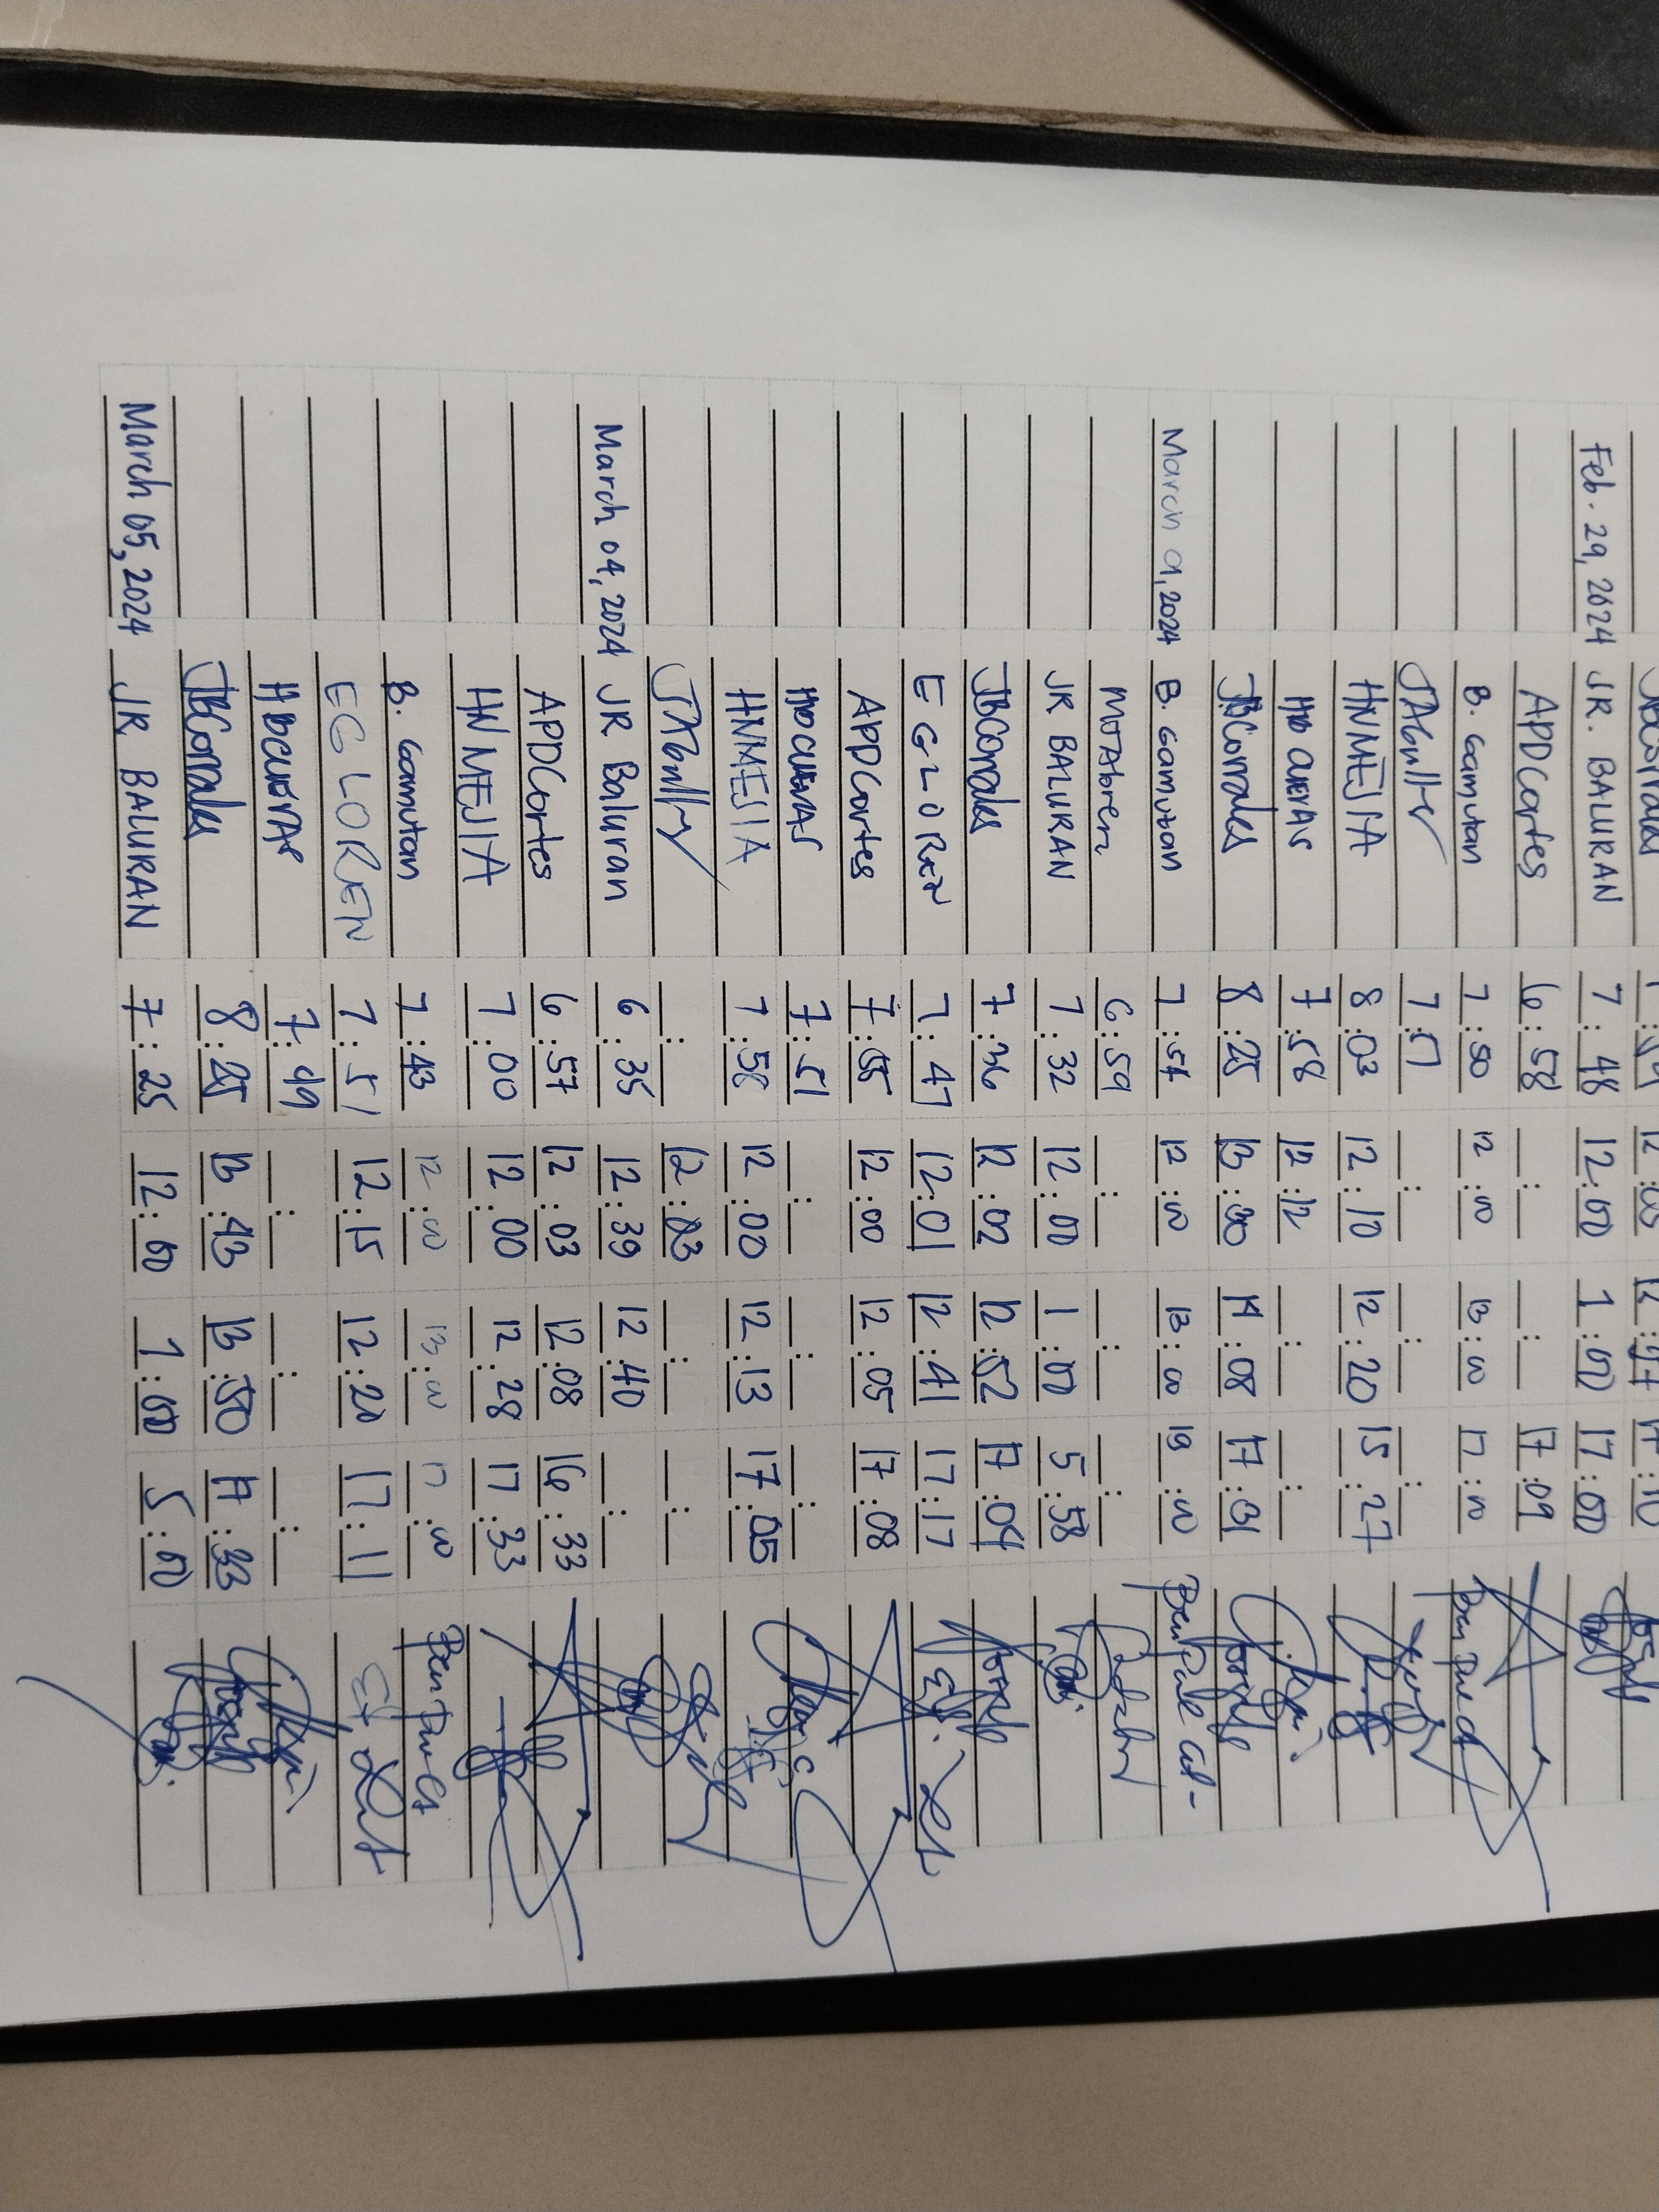 Feb. 29, 2024 JR. BALURAN 7:48 12:00 1:00 17:00
APDCortes 6:58 __:__ __:__ 17:09
B. Gamutan 7:50 12:00 13:00 17:00
JAGuller 7:51 __:__ __:__ __:__
HNMEJIA 8:03 12:10 12:20 15:27
HD CUEVAS 7:58 12:12 __:__ __:__
JBCorrales 8:25 13:30 14:08 17:31
March 01, 2024 B. Gamutan 7:54 12:00 13:00 19:00
6:59 __:__ __:__ __:__
JR BALURAN 7:32 12:00 1:00 5:58
JBCorrales 7:36 12:02 12:52 17:04
EGLOREN 7:47 12:01 12:41 17:17
APDCortes 7:55 12:00 12:05 17:08
HDCUEVAS 7:51 __:__ __:__ __:__
HNMEJIA 7:58 12:00 12:13 17:05
__:__ 12:03 __:__ __:__
March 04, 2024 JR Baluran 6:35 12:39 12:40 __:__
APDCortes 6:57 12:03 12:08 16:33
HNMEJIA 7:00 12:00 12:28 17:33
B. Gamutan 7:43 12:00 13:00 17:00
EGLOREN 7:51 12:15 12:20 17:11
HDCUEVAS 7:49 __:__ __:__ __:__
JBCorrales 8:25 13:43 13:50 17:33
March 05, 2024 JR BALURAN 7:25 12:00 1:00 5:00